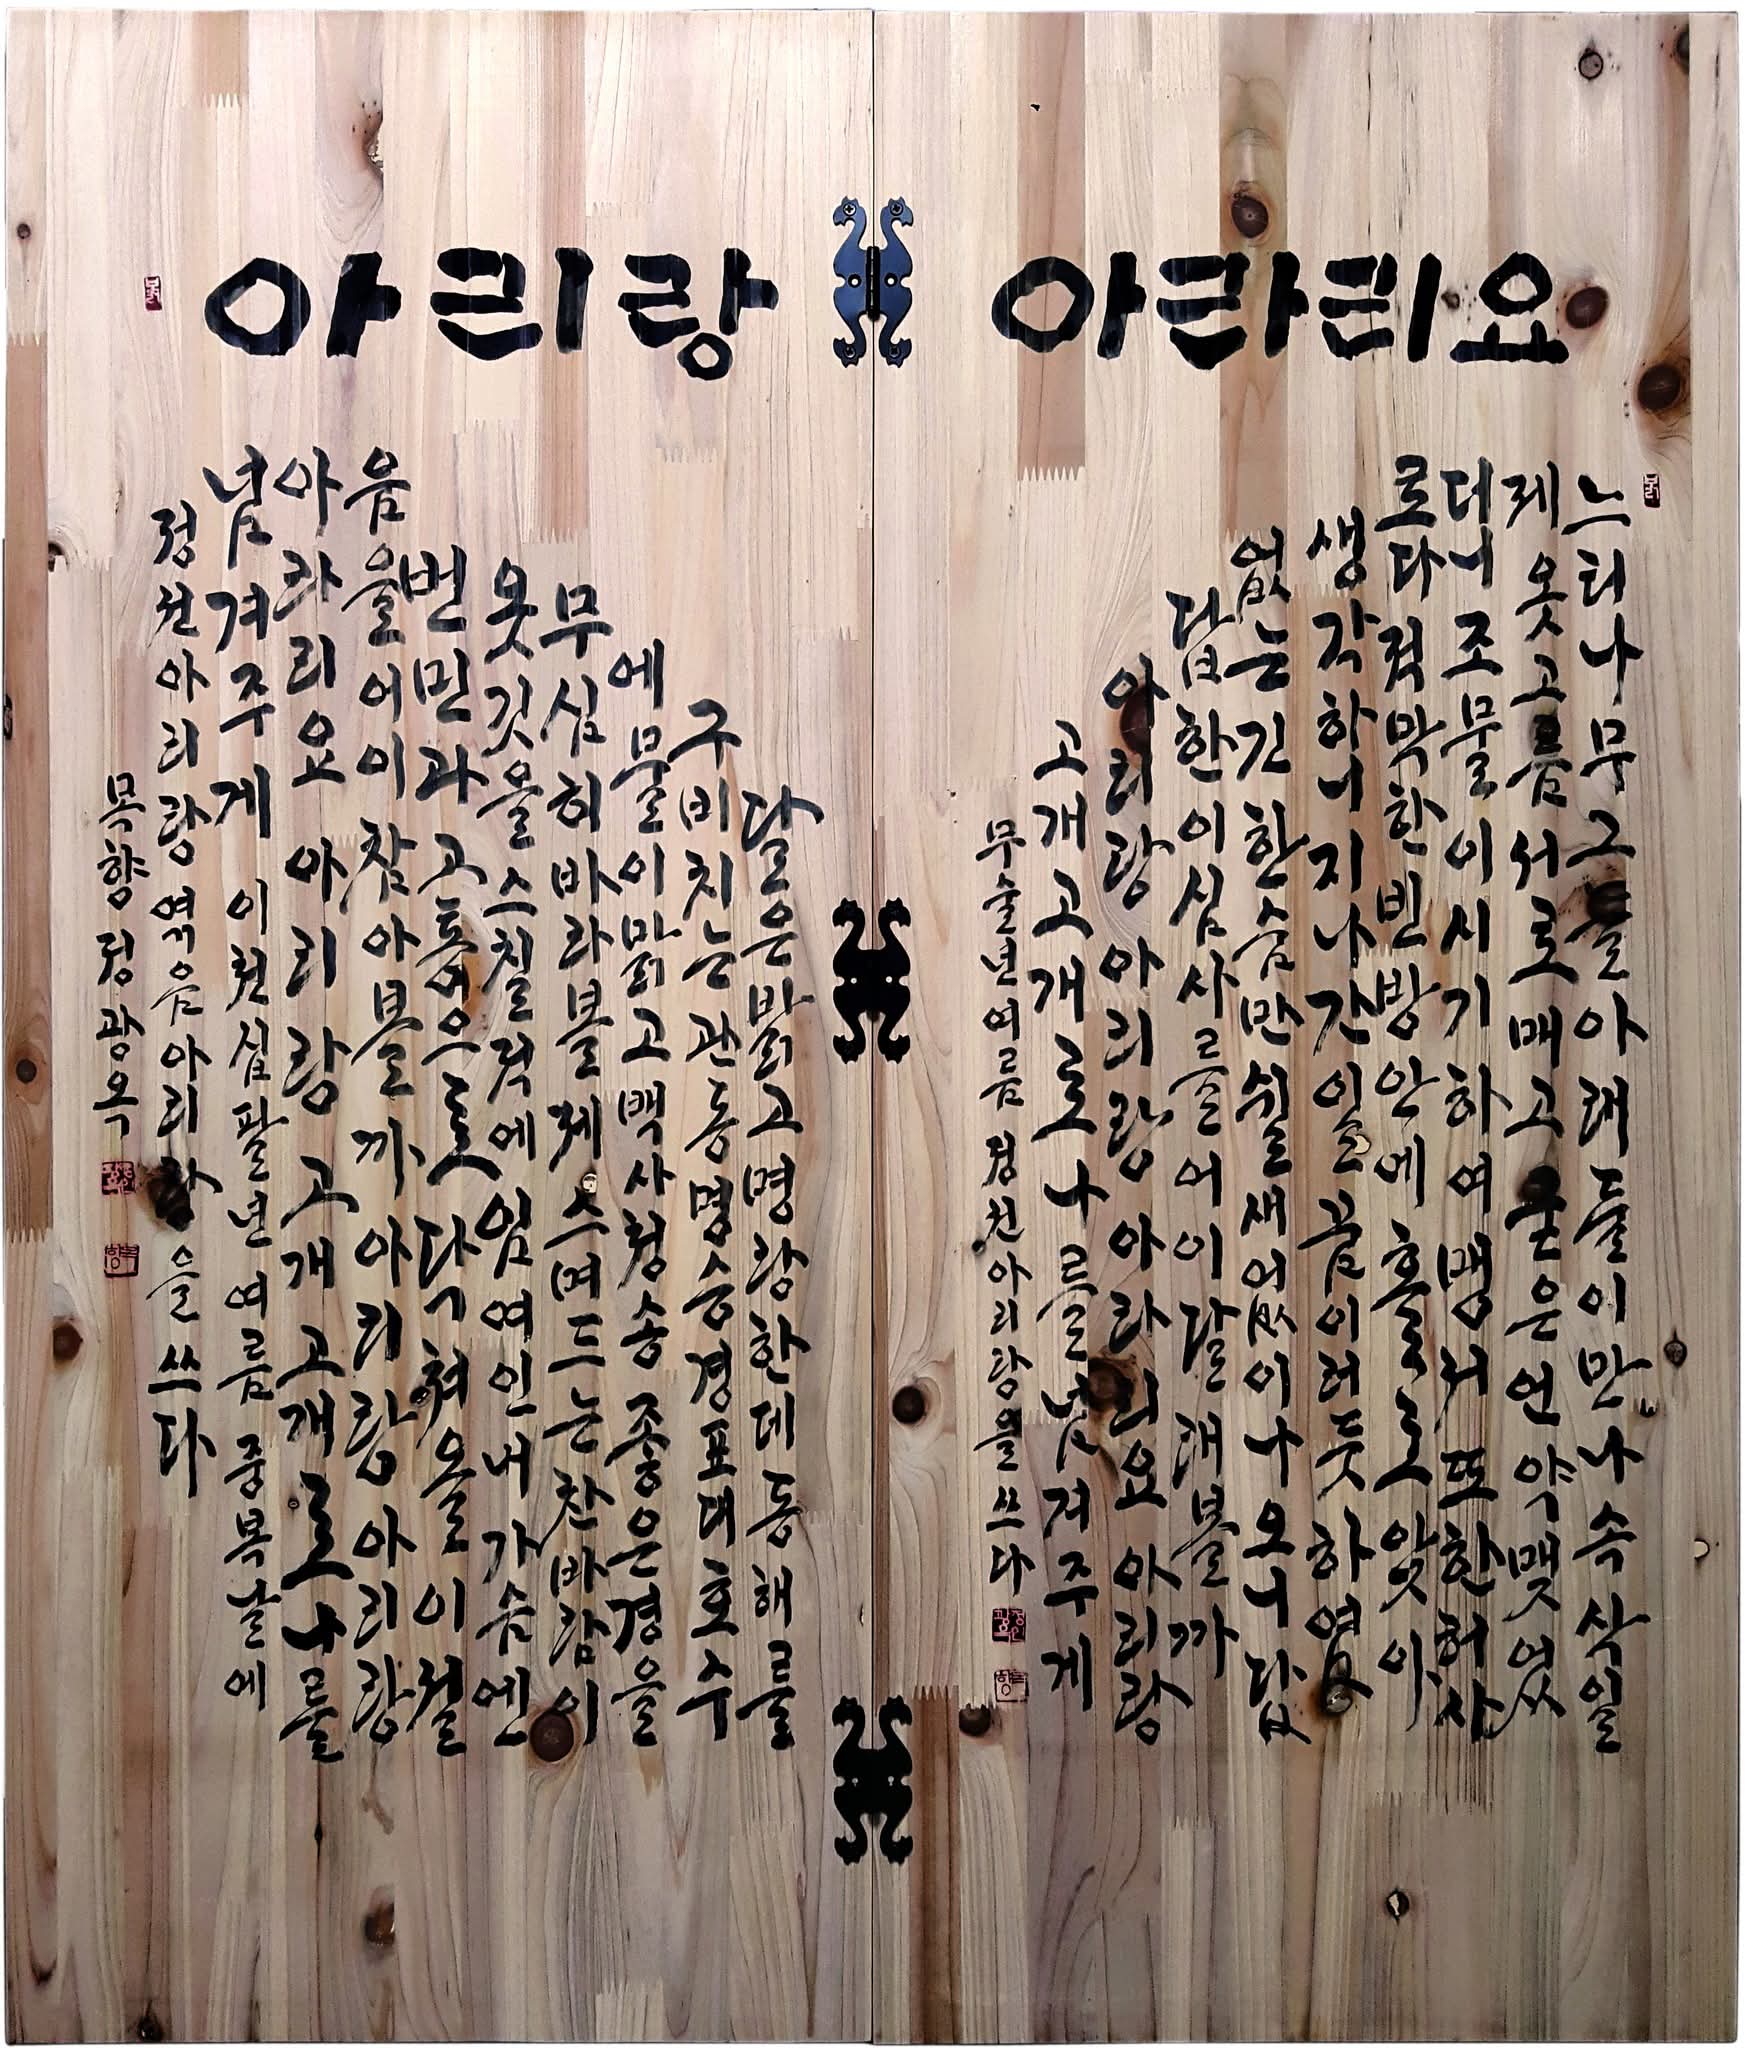 아리랑 아라리요
느티나무 그늘 아래 둘이 만나 속삭일
제 옷고름 서로 매고 굳은 언약 맺었
더니 조물이 시기하여 맹서 또한 허사
로다 적막한 빈방 안에 홀로 앉아
생각하니 지나간 일 꿈이러듯 하염
없는 긴 한숨만 쉴새없이 나오니 답
답한 이 심사를 어이 달래볼까
아리랑 아리랑 아라리요 아리랑
고개고개로 나를 넘겨주게
무술년여름 정선아리랑을 쓰다
달은 밝고 명랑한데 동해를
구비치는 관동명승 경포대 호수
에 물이 맑고 백사청송 좋은 경을
무심히 바라볼제 스며드는 찬바람이
옷깃을 스칠적에 임 여인 내 가슴엔
번민과 고통으로 닥쳐올 이 설
음을 어이 참아볼까 아리랑 아리랑
아라리요 아리랑 고개고개로 나를
넘겨주게 이천십팔년 여름 중복날에
정선아리랑 엮음아리랑을 쓰다
목향 정광옥